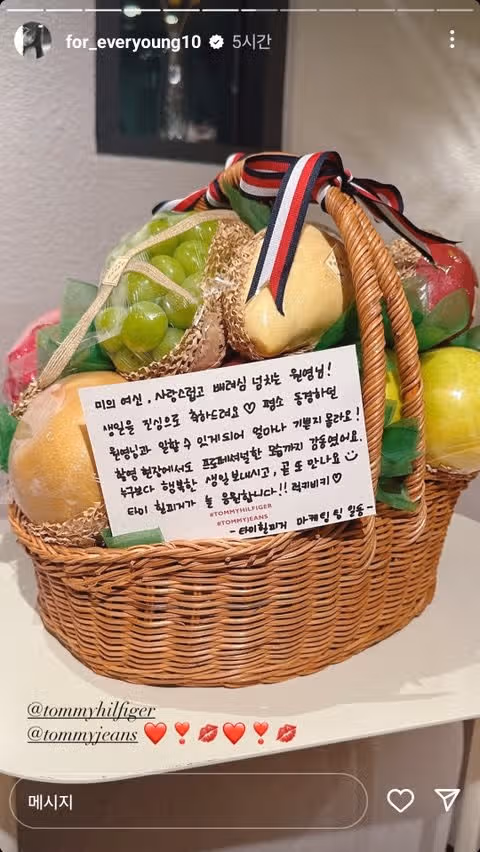 for_everyoung10 5시간
미의 여신, 사랑스럽고 배려심 넘치는 원영님!
생일을 진심으로 축하드려요♡ 평소 동경하던
원영님과 일할 수 있게되어 얼마나 기쁜지 몰라요!
촬영 현장에서도 프로페셔널한 모습까지 감동였어요.
누구보다 행복한 생일 보내시고, 곧 또 만나요
타미 힐피거가 늘 응원합니다!! 럭키비키♡
#TOMMYHILFIGER
#TOMMYJEANS
- 타미힐피거 마케팅팀 일동 -
@tommyhilfiger
@tommyjeans ❤️❣️💋❤️❣️💋
메시지